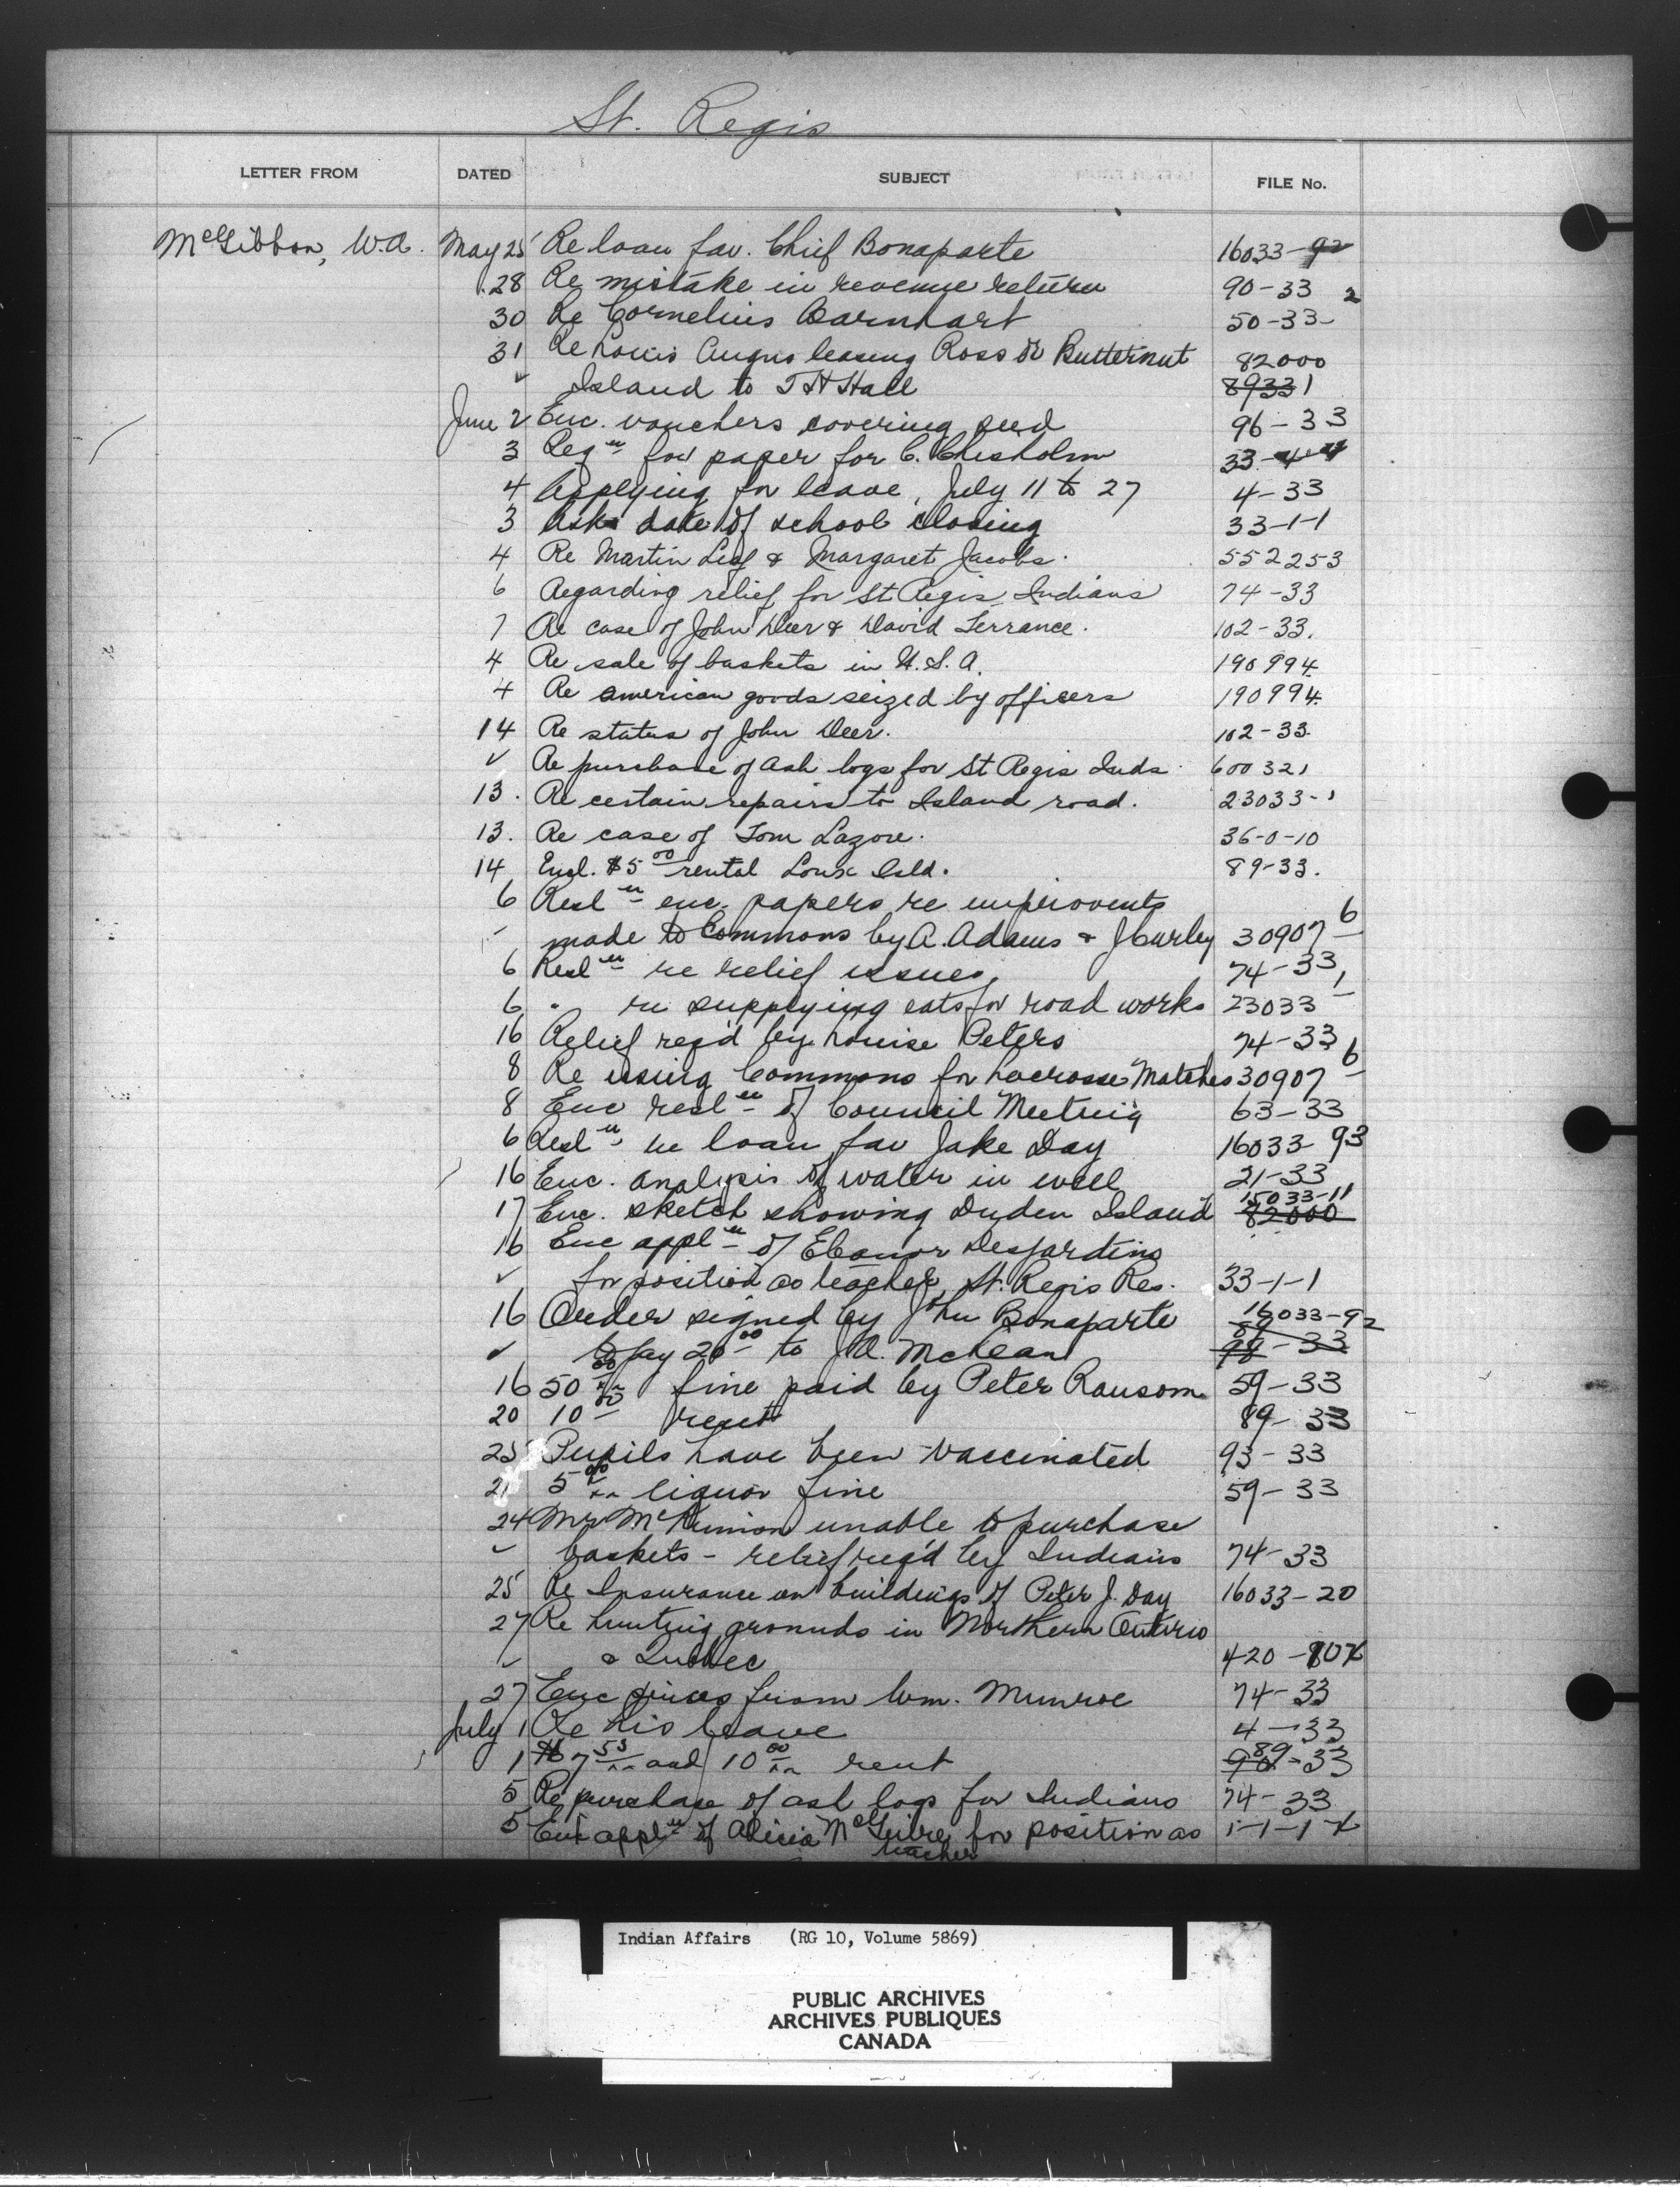 St. Regis
LETTER FROM DATED SUBJECT FILE No.
McGibbon, W.A. May 25 Re loan fav. Chief Bonaparte 16033-92
28 Re mistake in revenue return 90-33
30 Re Cornelius Barnhart 50-33-2
31 Re Louis Angus leasing Ross or Butternut 82000
✓ Island to T H Hall 89331
June 2 Enc. vouchers covering seed 96-33
3 Reqn for paper for C. Chisholm 33-4-4
4 Applying for leave, July 11 to 27 4-33
3 Asks date of school closing 33-1-1
4 Re Martin Leaf & Margaret Jacobs. 552253
6 Regarding relief for St Regis Indians 74-33
7 Re case of John Deer & David Terrance. 102-33.
4 Re sale of baskets in U.S.A. 190994.
4 Re american goods seized by officers 190994.
14 Re status of John Deer. 102-33.
✓ Re purchase of ash logs for St Regis Inds. 600321
13. Re certain repairs to Island road. 23033-1
13. Re case of Tom Lazore. 36-0-10
14 Encl. $5 00 rental Isld. 89-33.
6 Resln enc. papers re improvents
made to Commons by A. Adams & J Curley 30907-6
6 Resln re relief issues 74-33
6 " re supplying eats for road works 23033-1
16 Relief req'd by Louise Peters 74-33
8 Re using Commons for Lacrosse Matches 30907-6
8 Enc resln of Council Meeting 63-33
6 Resln re loan fav Jake Day 16033-93
16 Enc. analysis of water in well 21-33
17 Enc. sketch showing Island 15033-11 82000
16 Enc appln of Eleanor Desjardins
✓ for position as teacher, St. Regis Res. 33-1-1
16 Order signed by John Bonaparte 16033-92
✓ to pay 20 00 to J.A. McLean 98-33
16 50 00 fine paid by Peter Ransom 59-33
20 10 00 rent 89-33
23 Pupils have been vaccinated 93-33
21 5 00 liquor fine 59-33
24 Mr unable to purchase
✓ baskets - relief req'd by Indians 74-33
25 Re Insurance on buildings of Peter J. Day 16033-20
27 Re hunting grounds in Northern Ontario
✓ & Quebec 420-10X
27 Enc prices from Wm. Munroe 74-33
July 1 Re his leave 4-33
1 $7 53 and 10 00 rent 89-33
5 Re purchase of ash logs for Indians 74-33
5 Enc appln of Alicia McGuire for position as 1-1-1X
teacher
Indian Affairs (RG 10, Volume 5869)
PUBLIC ARCHIVES
ARCHIVES PUBLIQUES
CANADA